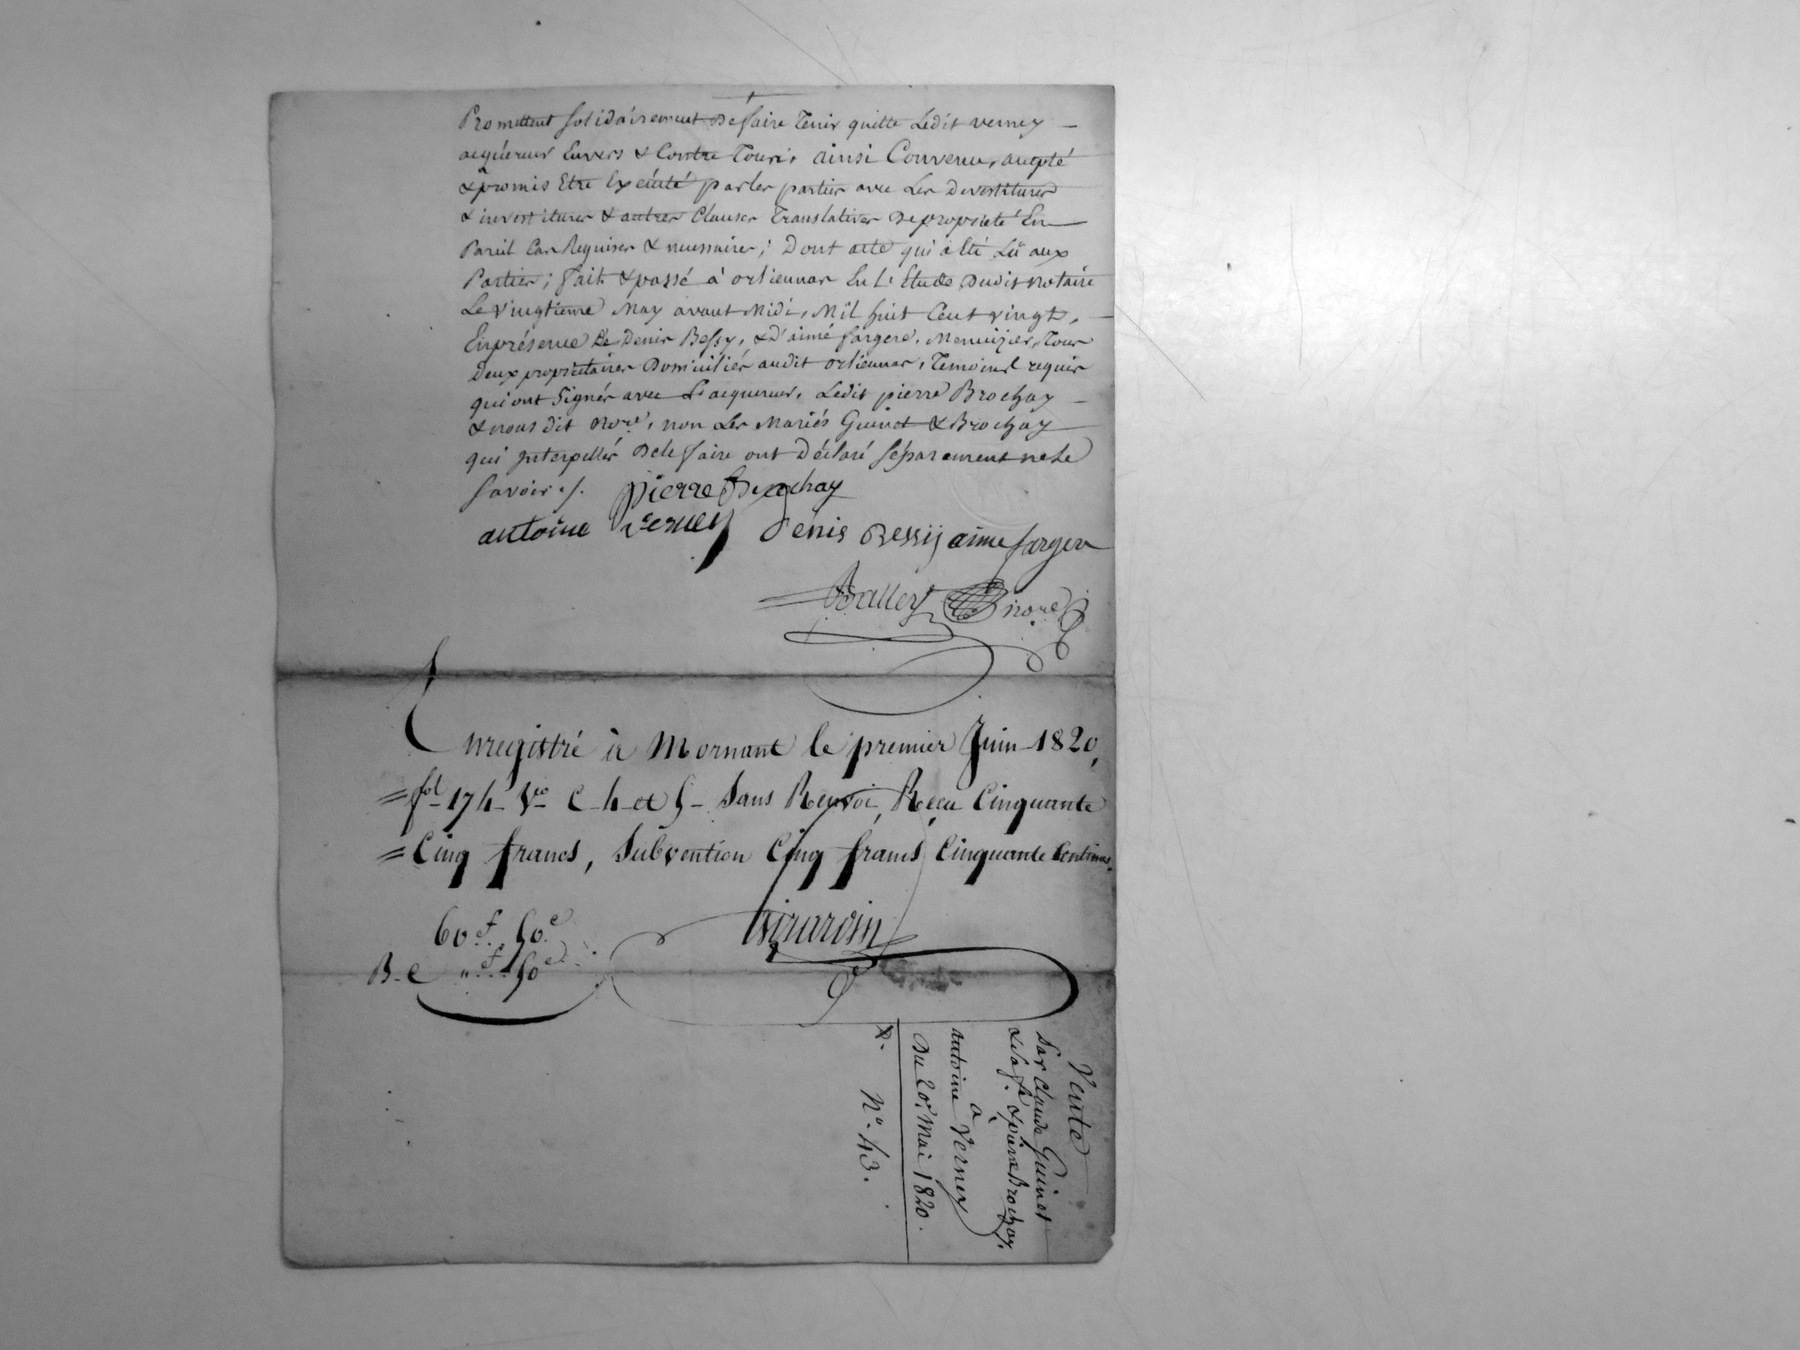 Promettent solidairement de faire tenir quitte ledit verney
acquereur Envers & Contre Tous, ainsi Convenu, accepté
& promis Etre Exécuté par les parties avec les Devestitures
& investitures & autres Clauses Translatives de propriété En
Pareil Cas Requises & necessaires; Dont acte qui a Eté Lû aux
Parties; fait & passé à orliennas En L'Etude dudit notaire
Le vingtieme May avant Midi, Mil huit Cent vingt,
En présence de Denis Bessy, & d'aimé fargere, Menuizier, Tous
Deux propriétaires Domiciliés audit orliennas, Temoins requis
qui ont Signés avec L'acquereur, Ledit pierre Brochay
& nous dit Nore, non Les Mariés Guinet & Brochay
qui Interpellés de le faire ont Déclaré séparement ne le
savoir ./.
pierre Brochay
antoine Verney Denis Bessy aimé fargere
Balley nore
Enregistré à Mornant le premier Juin 1820,
fol 174 Vo C. 4 et 5 Sans Renvoi, Reçu Cinquante
Cinq francs, Subvention Cinq francs Cinquante Centimes.
60 f. 50 c
B. C " f. 50 c
Girardin
Vente
Par Claude Guinet
& sa fe & pierre Brochay,
a
antoine Verney
Du 20 Mai 1820.
No. 43.